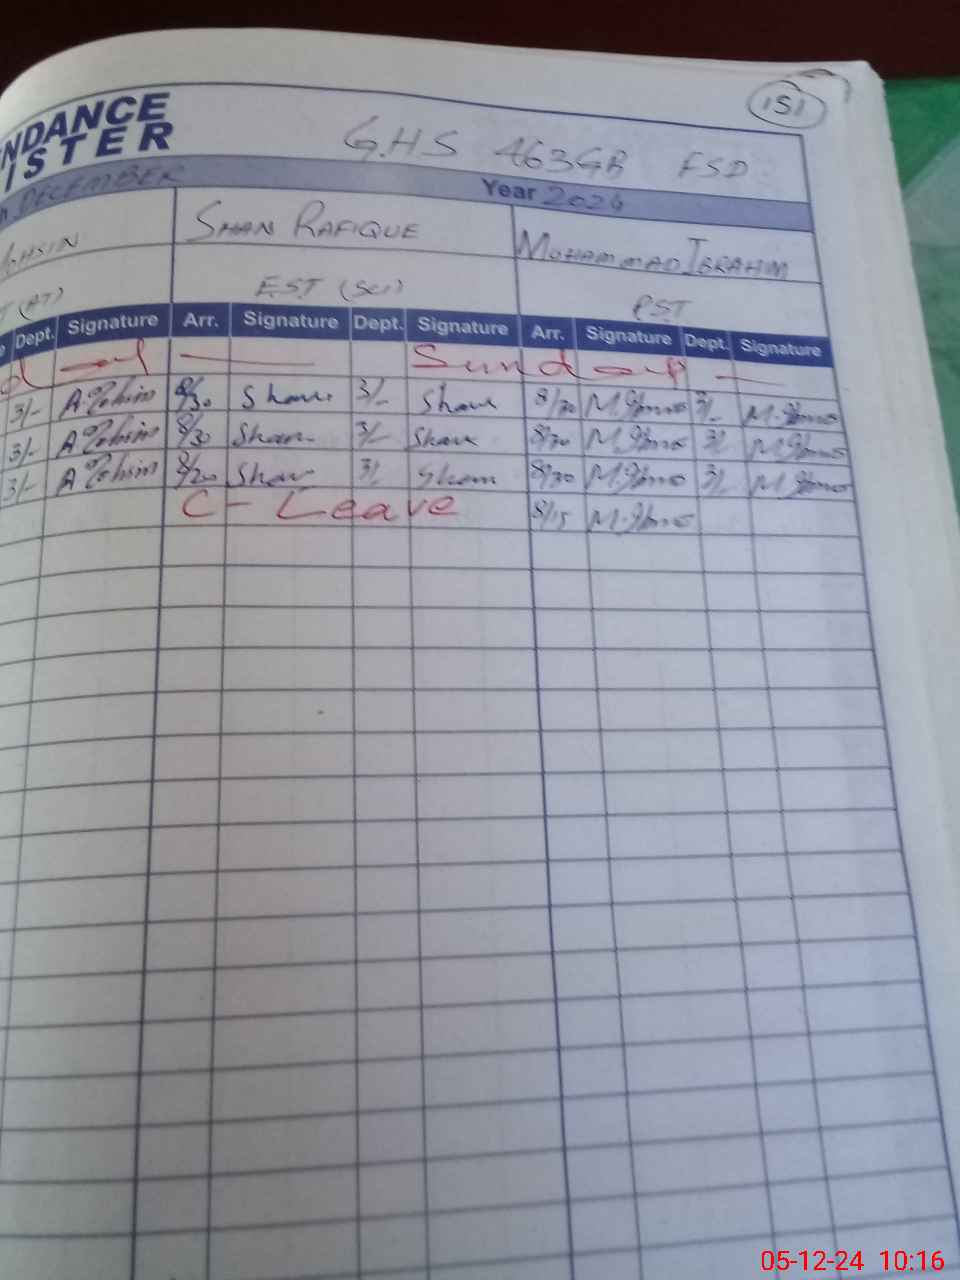 151
NDANCE
ISTER
G.H.S 463GB FSD
DECEMBER Year 2024
MOHSIN SHAN RAFIQUE MUHAMMAD IBRAHIM
EST (SCI) PST
Dept. Signature Arr. Signature Dept. Signature Arr. Signature Dept. Signature
Sunday
3/- A.Mohsin 8/30 Shan 3/- Shan 8/30 3/-
3/- A.Mohsin 8/30 Shan 3/- Shan 8/30 3/-
3/- A.Mohsin 8/30 Shan 3/- Shan 8/30 3/-
C - Leave 8/15
05-12-24 10:16